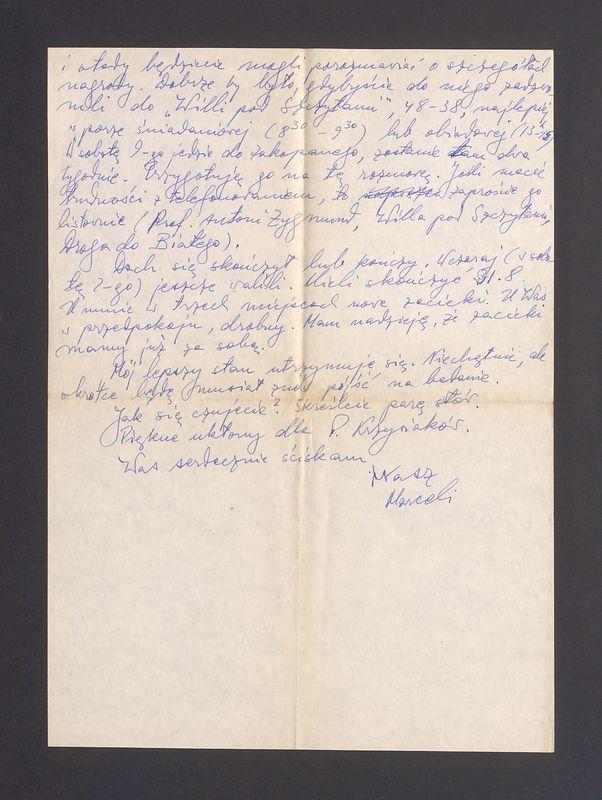 i wtedy będziecie mogli porozmawiać o szczegółach
nagrody. Dobrze by było, gdybyście do niego zadzwo-
nili do „Willi pod Szczytami", 48-38, najlepiej
w porze śniadaniowej (8³⁰ – 9³⁰) lub obiadowej
W sobotę 9-go jedzie do Zakopanego, zostanie tam dwa
tygodnie. Przygotuję go na tę rozmowę. Jeśli macie
trudności z telefonowaniem, to zaproście go
listownie (Prof. Antoni Zygmund, Willa pod Szczytami,
Droga do Białego).
Dach się skończył lub kończy. Wczoraj (w sobo-
tę 2-go) jeszcze walili. Mieli skończyć 31.8.
U mnie w trzech miejscach nowe zacieki. U Was
w przedpokoju, drobny. Mam nadzieję, że zacieki
mamy już za sobą.
Mój lepszy stan utrzymuje się. Niechętnie, ale
wkrótce będę musiał znów pójść na badanie.
Jak się czujecie? Skreślcie parę słów.
Piękne ukłony dla P. Krzysiaków.
Was serdecznie ściskam
Wasz
Marceli